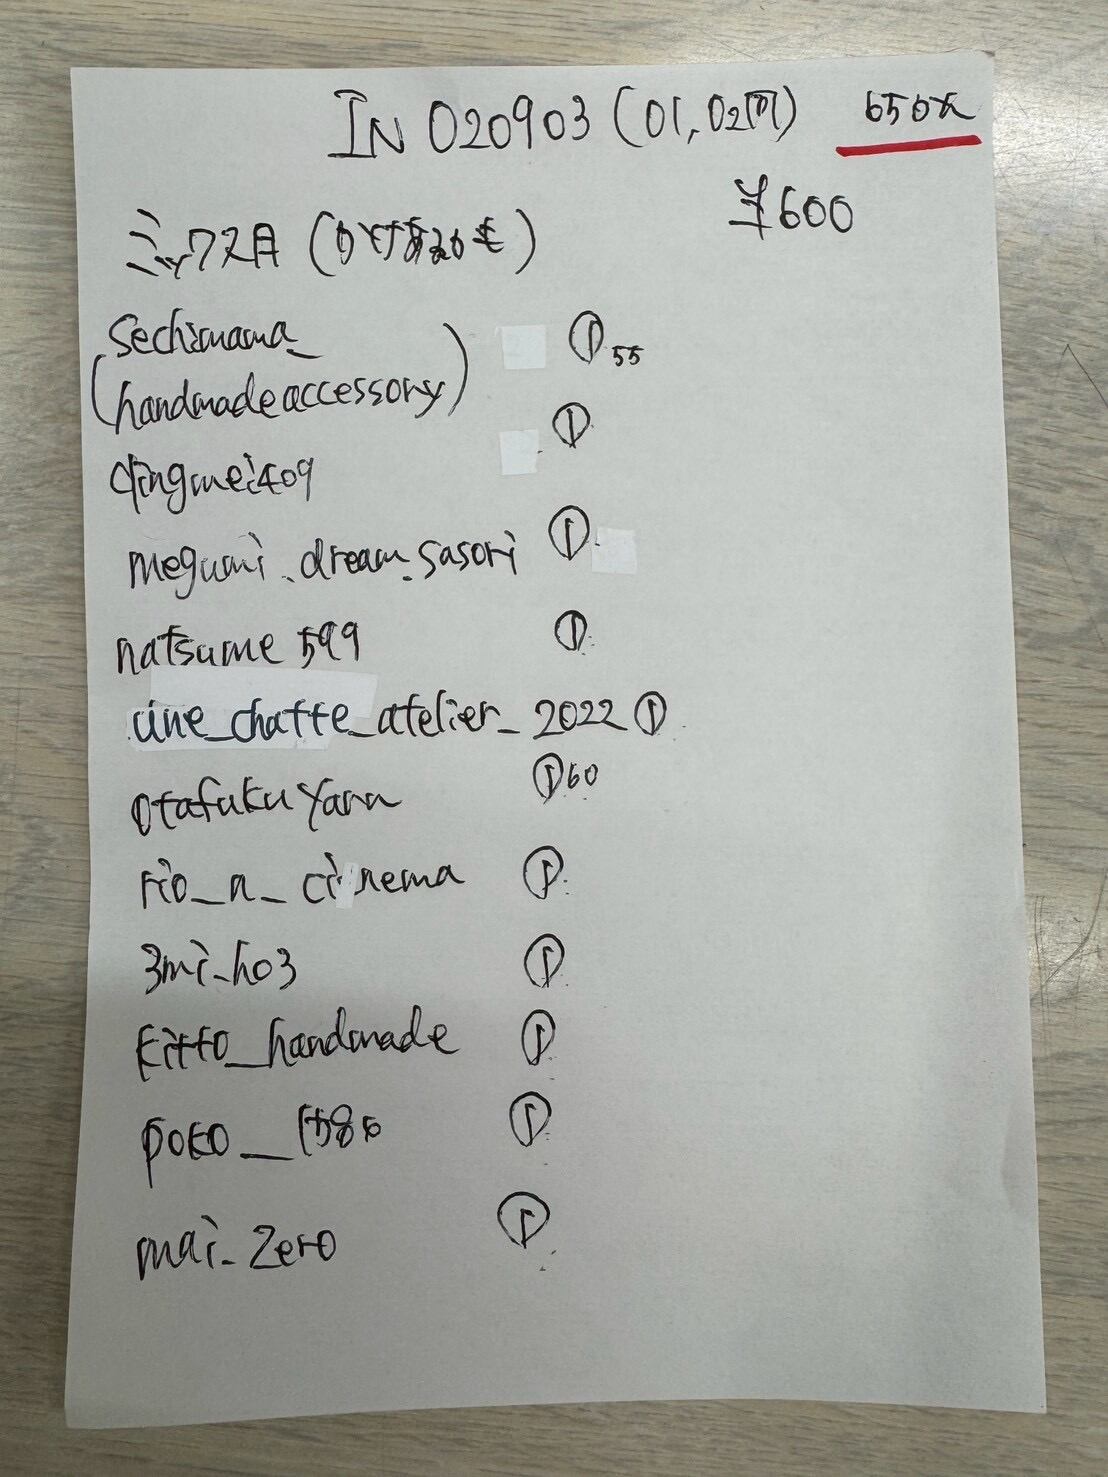 IN 020903 (01,02同) 650
¥600
ミックス月
sechimama_ ① 55
(handmadeaccessory)
qingmei409 ①
megumi.dream.sasori ①
natsume599 ①
cine_chatte_atelier_2022 ①
otafukuyann ① 60
rio_n_cinema ①
3mi_ho3 ①
kitto_handmade ①
poko__1580 ①
mai_zero ①